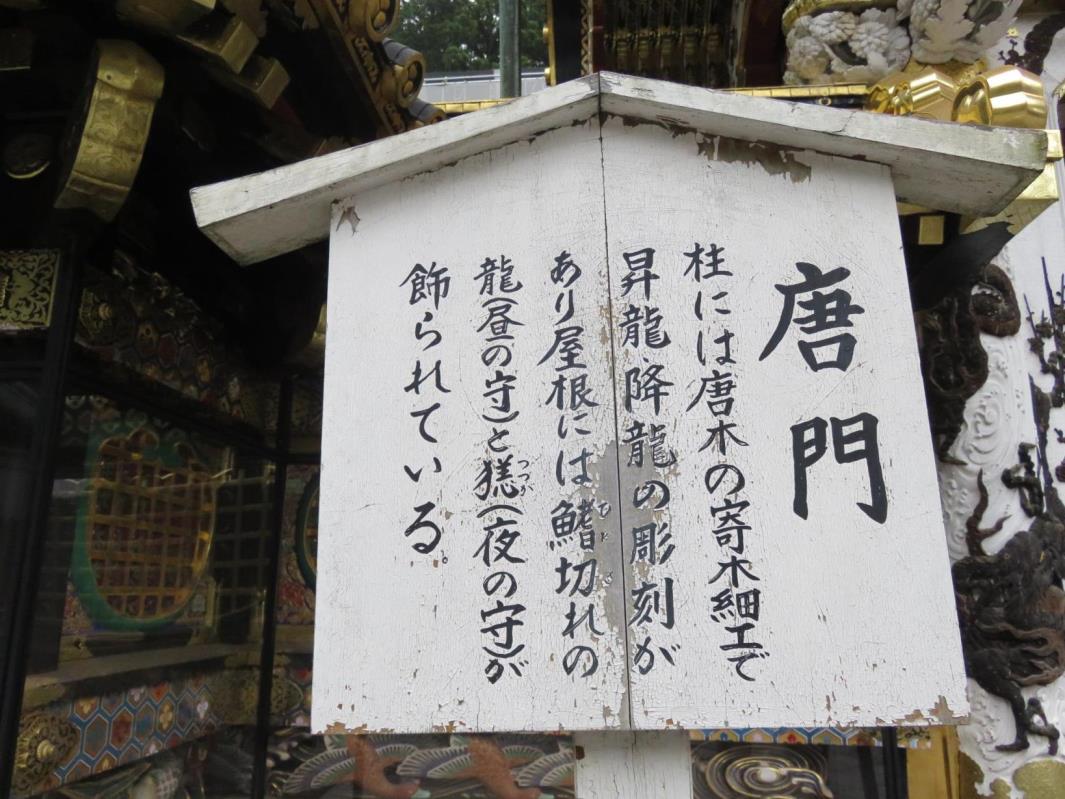 唐門
柱には唐木の寄木細工で
昇龍・降龍の彫刻が
あり屋根には鰭切れの
龍(昼の守)と獇(夜の守)が
つつが
飾られている。